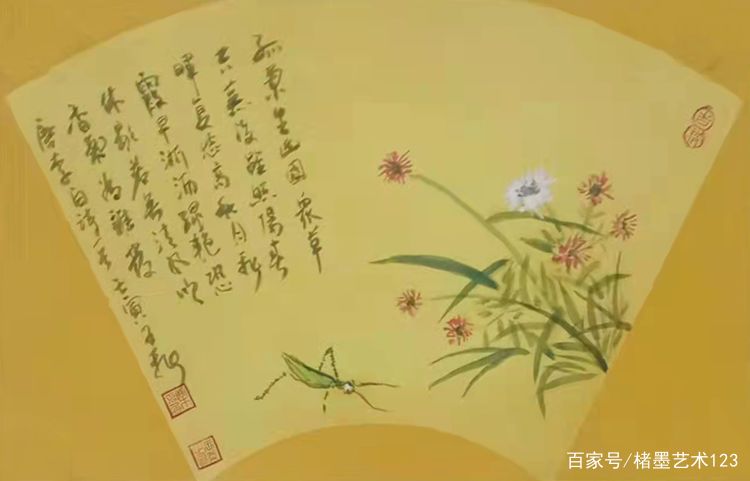 孤蘭生幽園眾草
共蕪没雖照陽春
暉复悲高秋月飛
霜早淅瀝緑艷恐
休歇若無清風吹
香氣為誰發
唐李白詩 壬寅
百家号/楮墨艺术123